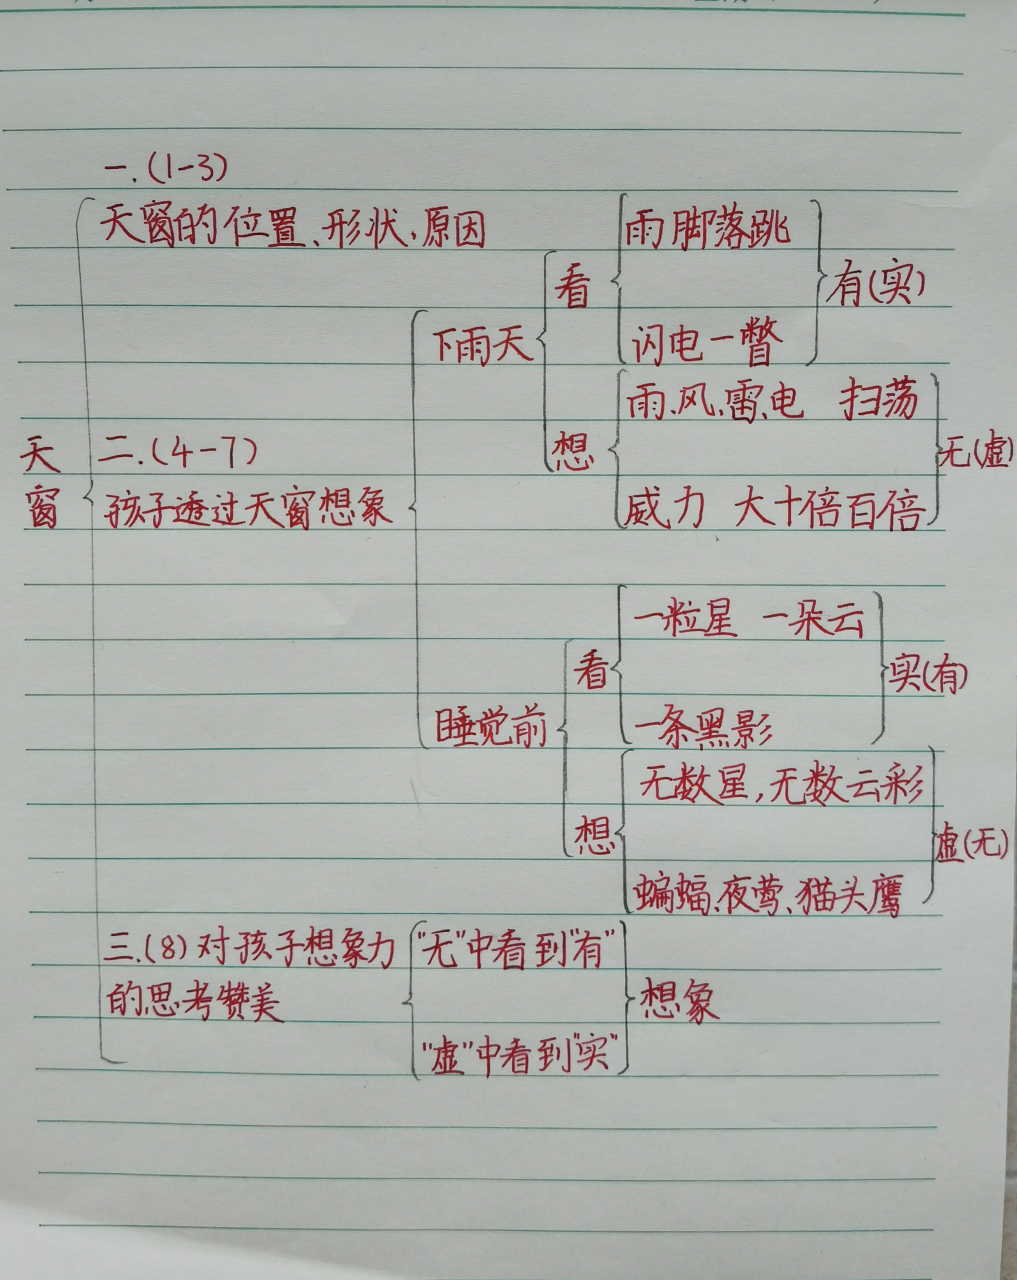 一.(1-3)
天窗的位置、形状、原因
雨脚落跳
看
有(实)
下雨天
闪电一瞥
雨、风、雷、电 扫荡
天窗
二.(4-7)
想
无(虚)
孩子透过天窗想象
威力 大十倍百倍
一粒星 一朵云
看
实(有)
睡觉前
一条黑影
无数星,无数云彩
想
虚(无)
蝙蝠、夜莺、猫头鹰
三.(8)对孩子想象力
的思考赞美
"无"中看到"有"
想象
"虚"中看到"实"